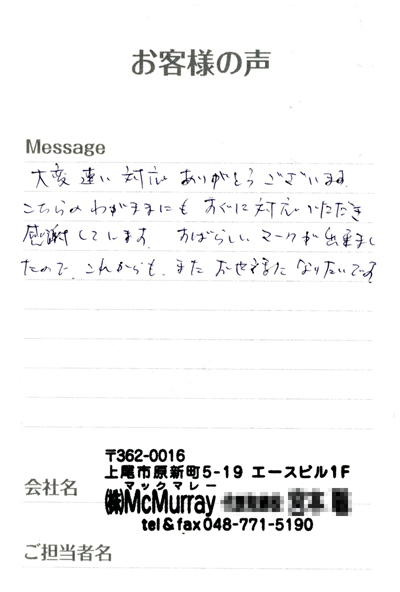 お客様の声
Message
大変速い対応ありがとうございます。
こちらのわがままにもすぐに対応いただき
感謝しています。すばらしいマークが出来まし
たので、これからも、またお世話になりたいです
〒362-0016
上尾市原新町5-19 エースビル1F
マックマレー
会社名 ㈱McMurray
tel&fax048-771-5190
ご担当者名